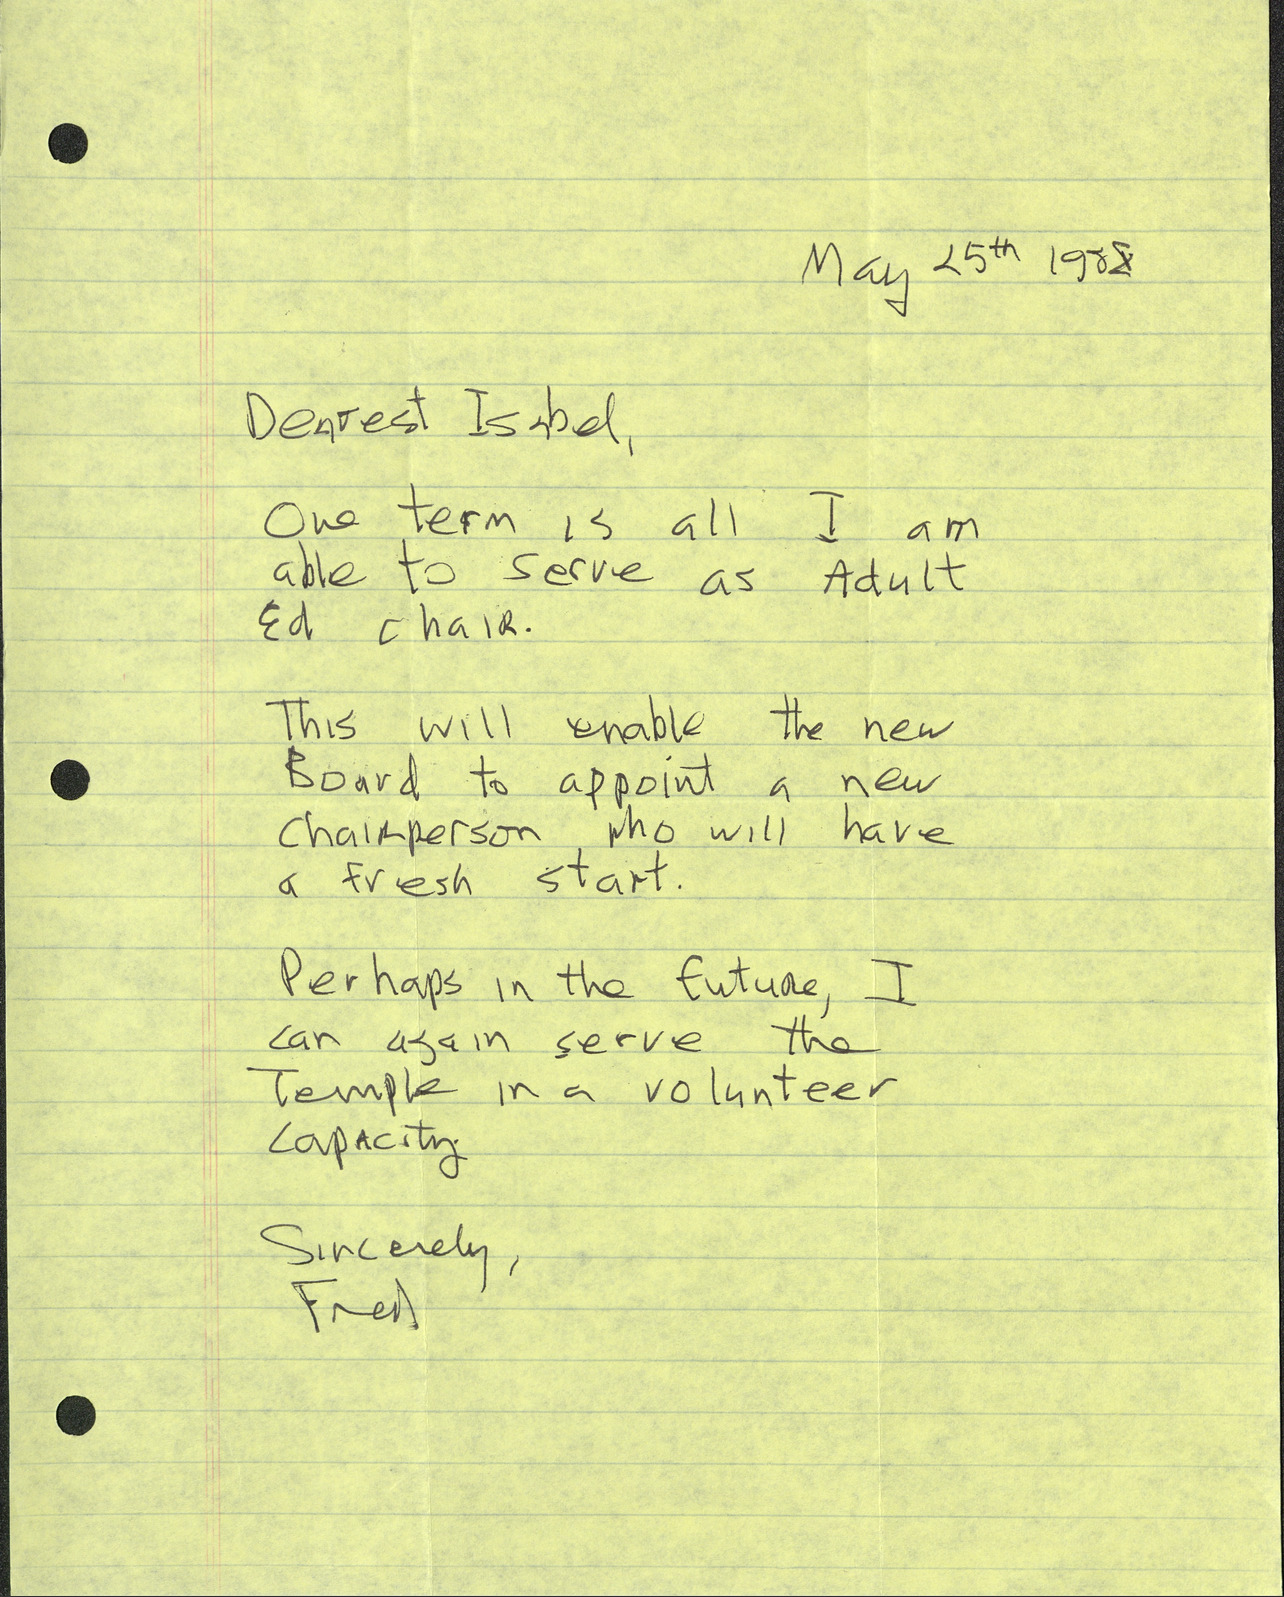 May 25th 1988
Dearest Isabel,
One term is all I am
able to serve as Adult
Ed chair.
This will enable the new
Board to appoint a new
chairperson who will have
a fresh start.
Perhaps in the future, I
can again serve the
Temple in a volunteer
capacity.
Sincerely,
Fred